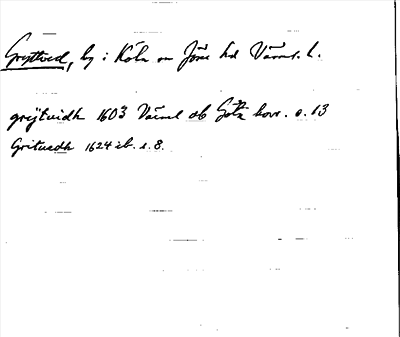 Gryttved, by i Köla sn Jösse hd Värml. l.
grÿtuidh 1603 Värml ob Göta hovr. s. 13
Grituedh 1624 ib. s. 8.